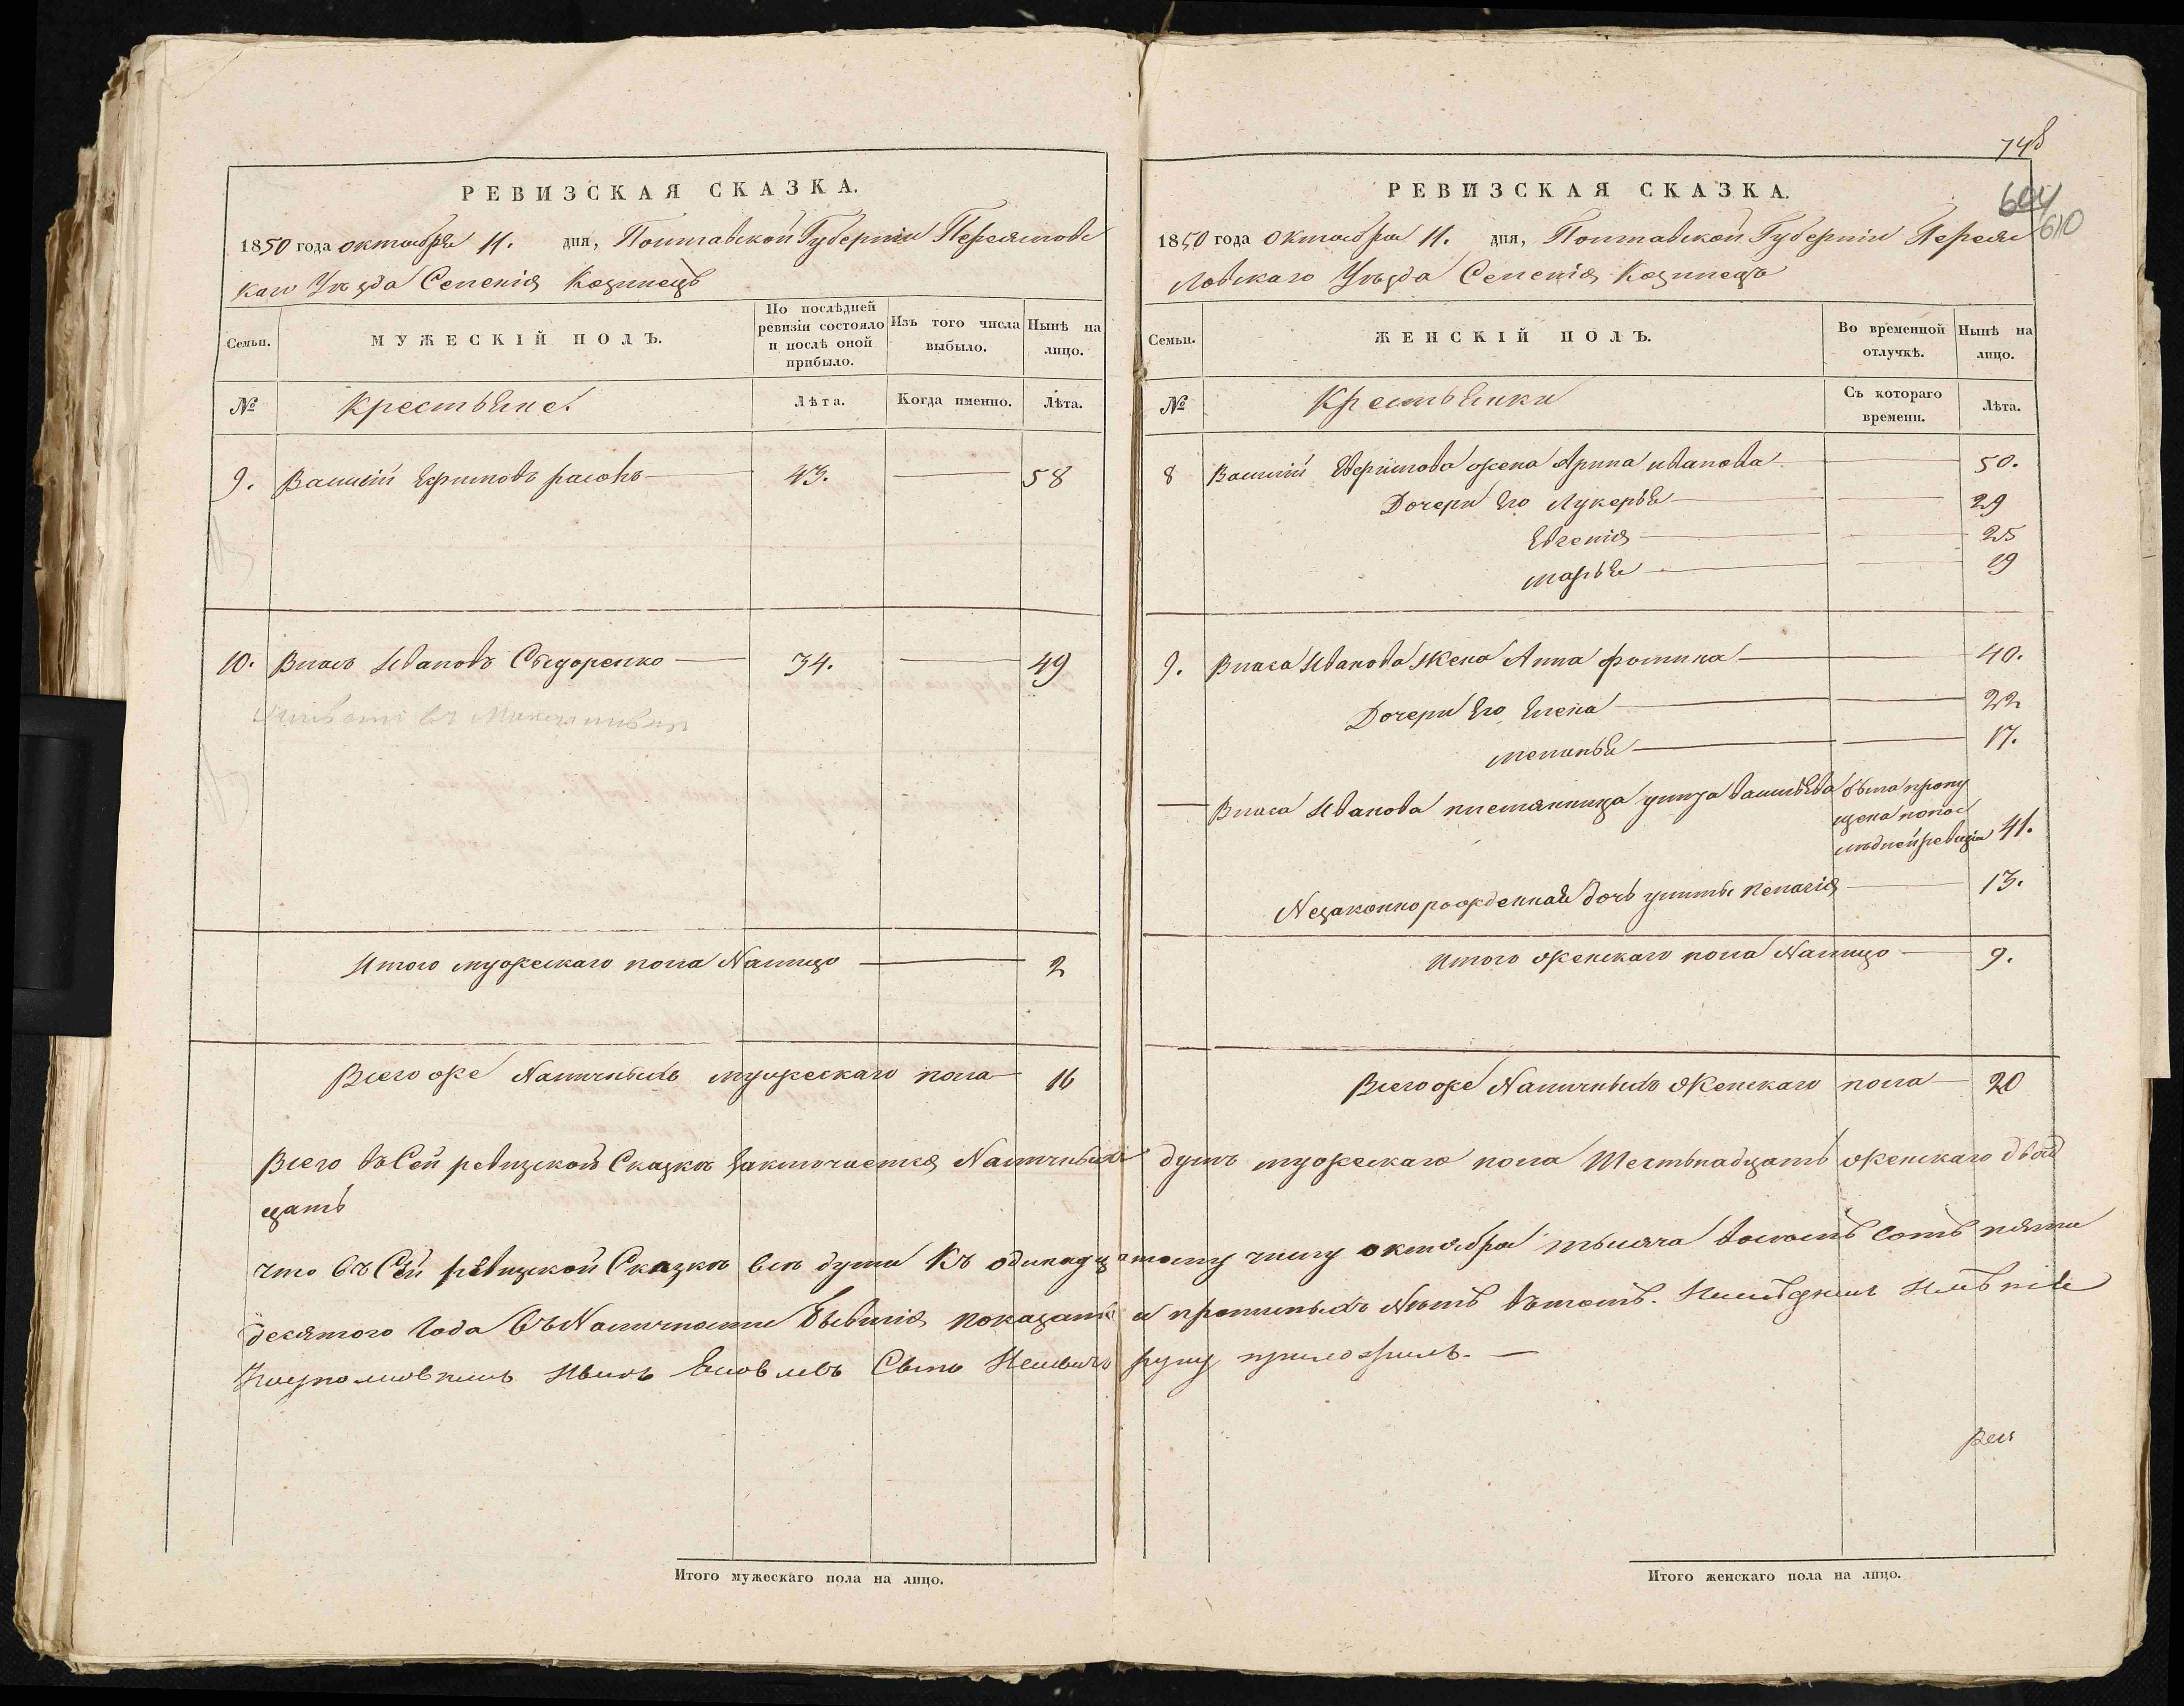 748
604
610
РЕВИЗСКАЯ СКАЗКА.
1850 года октября 11. дня, Полтавской Губернiи Переяслов
каго Уѣзда Селенiя Козинецъ
Семьи.
МУЖЕСКІЙ ПОЛЪ.
По послѣдней ревизіи состояло и послѣ оной прибыло.
Изъ того числа выбыло.
Нынѣ на лицо.
№
Крестьяне.
Лѣта.
Когда именно.
Лѣта.
9. Василiй Ефимовъ 43. 58
10. Власъ Ивановъ Сыдоренко 34. 49
Итого мужескаго пола Налицо 2
Всего же Наличныхъ мужескаго пола 16
РЕВИЗСКАЯ СКАЗКА.
1850 года Октября 11. дня, Полтавской Губернiи Переяс
ловскаго Уѣзда Селенiя Козинецъ
Семьи.
ЖЕНСКІЙ ПОЛЪ.
Во временной отлучкѣ.
Нынѣ на лицо.
№
Крестьянки
Съ котораго времени.
Лѣта.
8 Василiй Ефимова жена Арина иванова 50.
Дочери Его Лукерья 29
Евгенiя 25
марья 19
9. Власа Иванова Жена Анна фомина 40.
Дочери Его Елена 22
меланья 17.
Власа Иванова племянница улита васильева была пропу
щена попос
лѣдней ревизiи 41.
Незаконнорожденная дочь улиты пелагiя 13.
Итого женскаго пола Налицо 9.
Всего же Наличныхъ Женскаго пола 20
Всего въ Сей ревизской Сказкѣ заключается Наличныхъ душъ мужескаго пола Шестьнадцать женскаго двад
цать
что въ Сей ревизской Сказкѣ всѣ души Къ одинадцатому числу октября тысяча восемь сотъ пяти
десятого года въ Наличности бывшiя показаны и прописныхъ Нѣтъ вътомъ.
Иванъ Яковлевъ Сынъ руку приложилъ.
Итого мужескаго пола на лицо.
Итого женскаго пола на лицо.